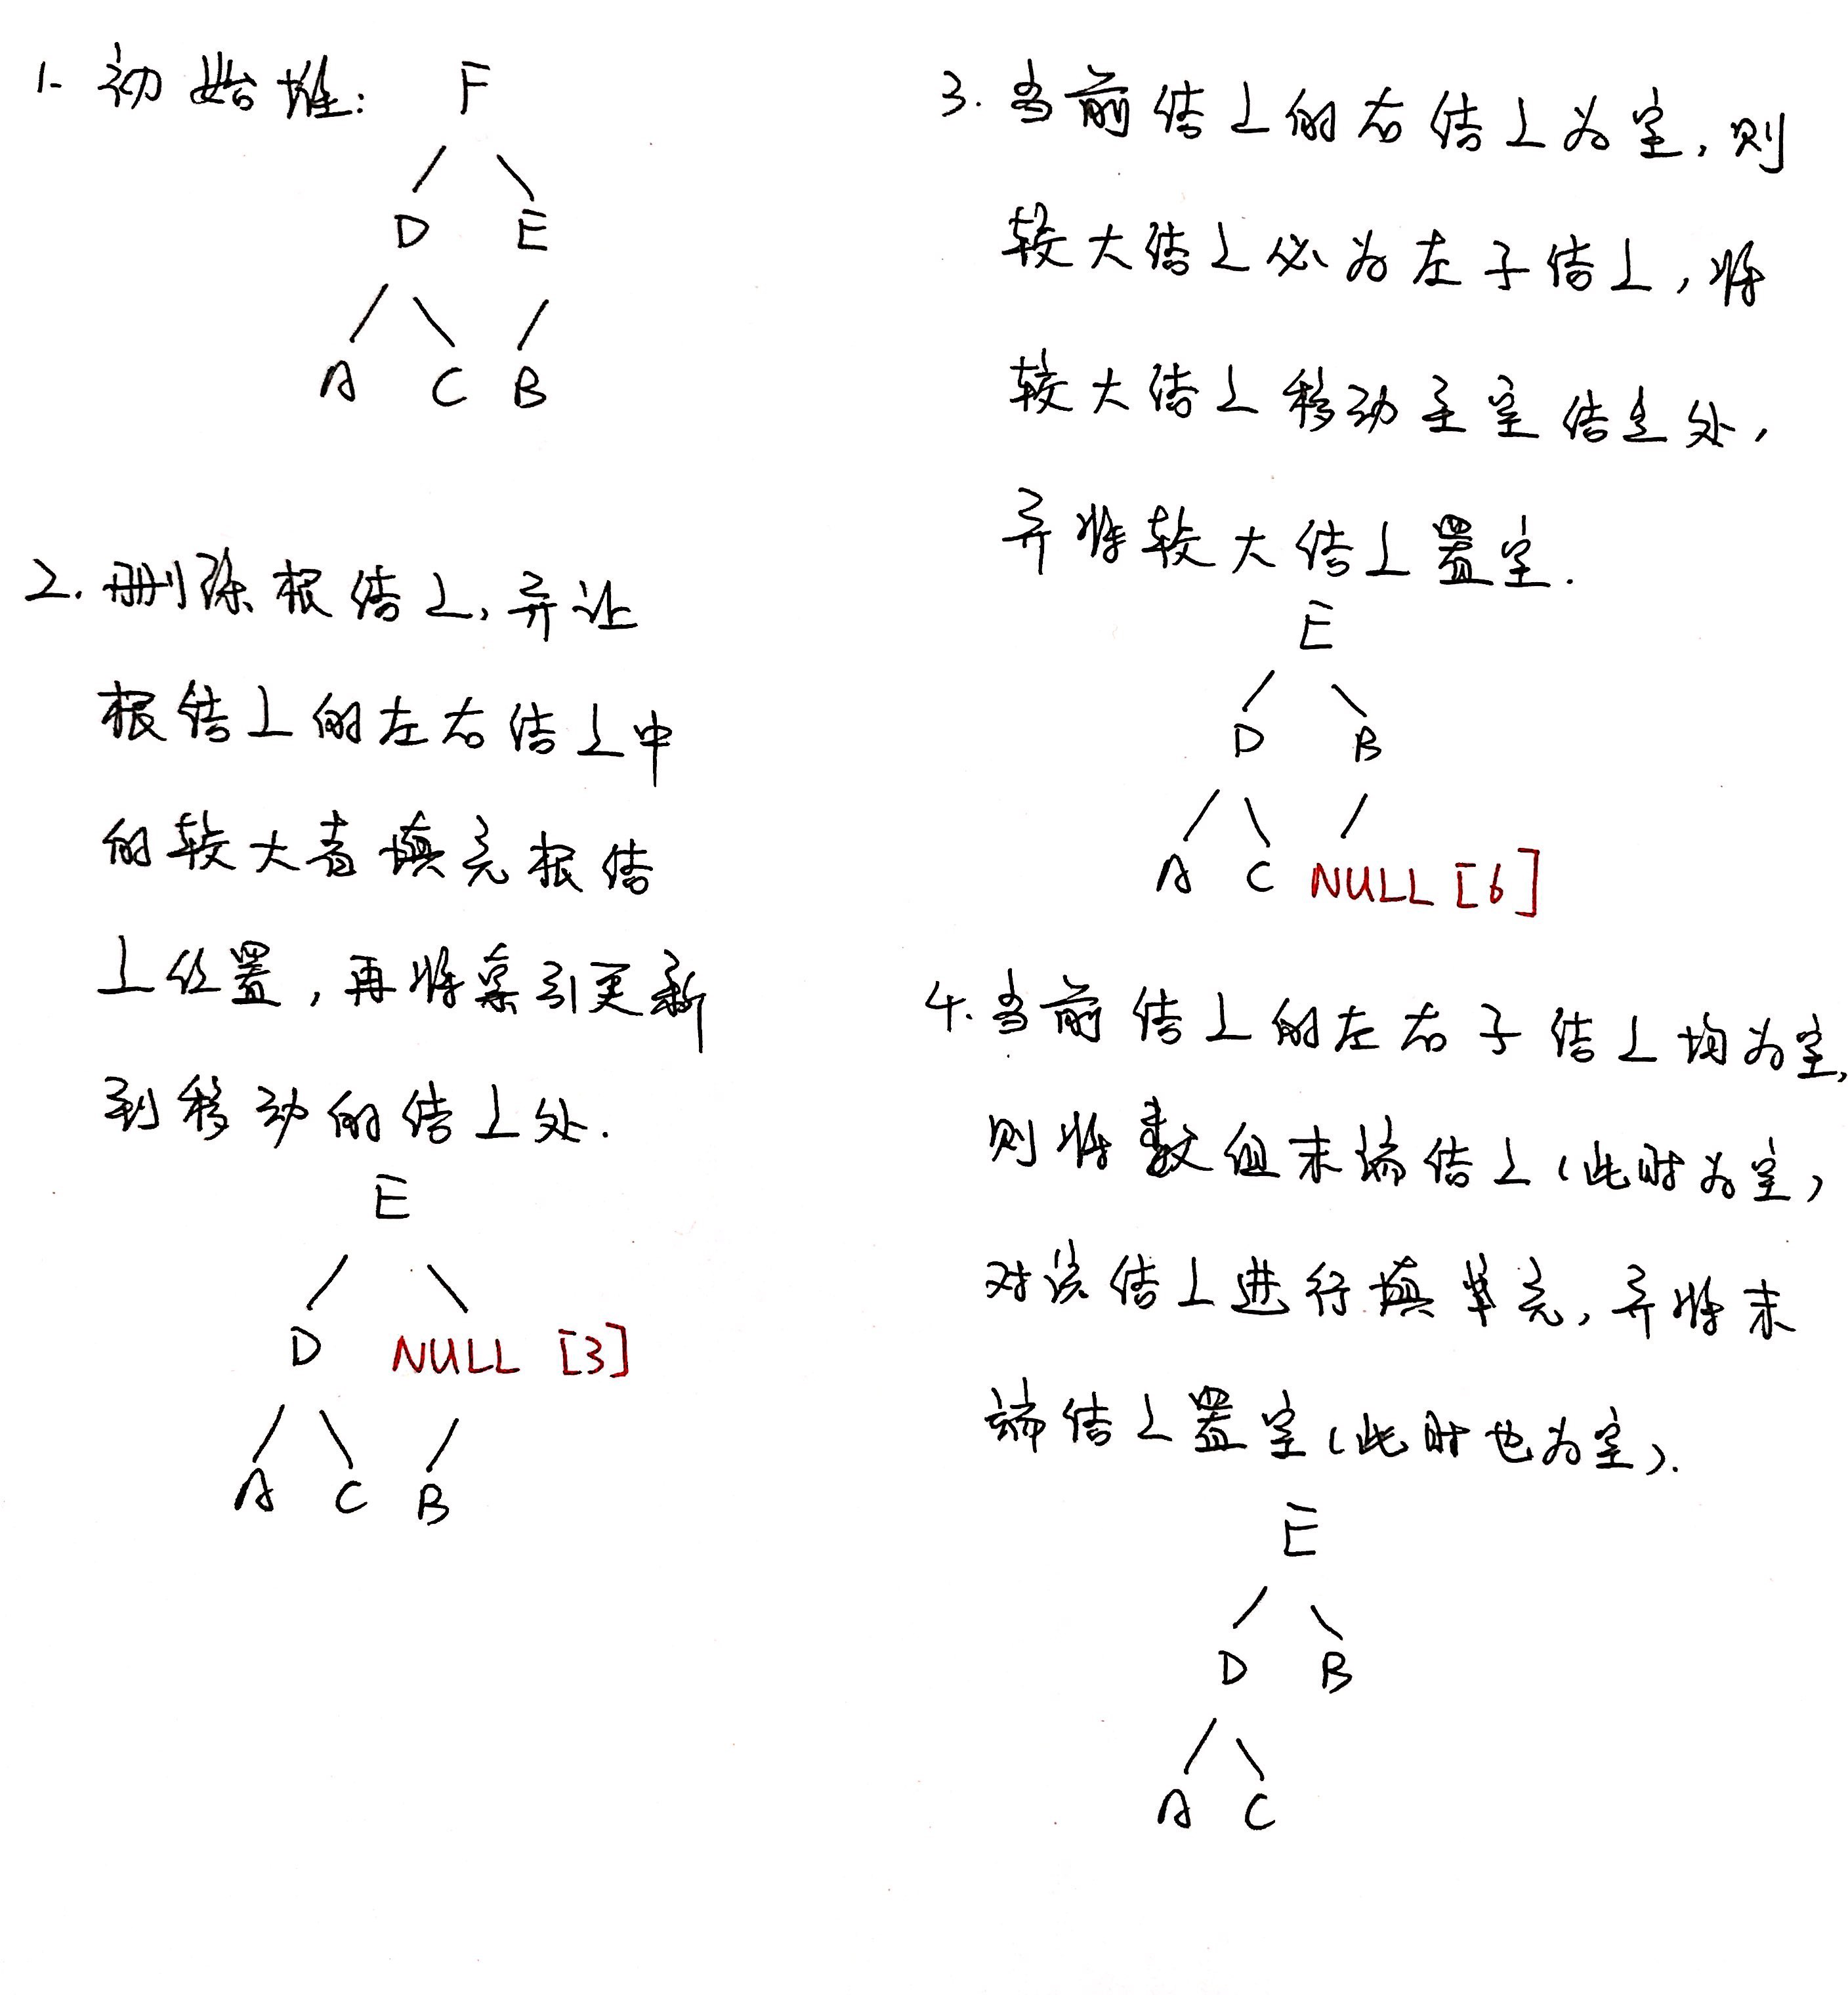 1. 初始堆:
F
D E
A C B
2. 删除根结上, 并让
根结上的左右结上中
的较大者填充根结
上位置, 再将索引更新
到移动的结上处.
E
D NULL [3]
A C B
3. 当前结上的右结上为空, 则
较大结上必为左子结上, 将
较大结上移动至空结点处,
并将较大结上置空.
E
D B
A C NULL [6]
4. 当前结上的左右子结上均为空,
则将数组末端结上(此时为空)
对该结上进行填充, 并将末
端结上置空(此时也为空).
E
D B
A C